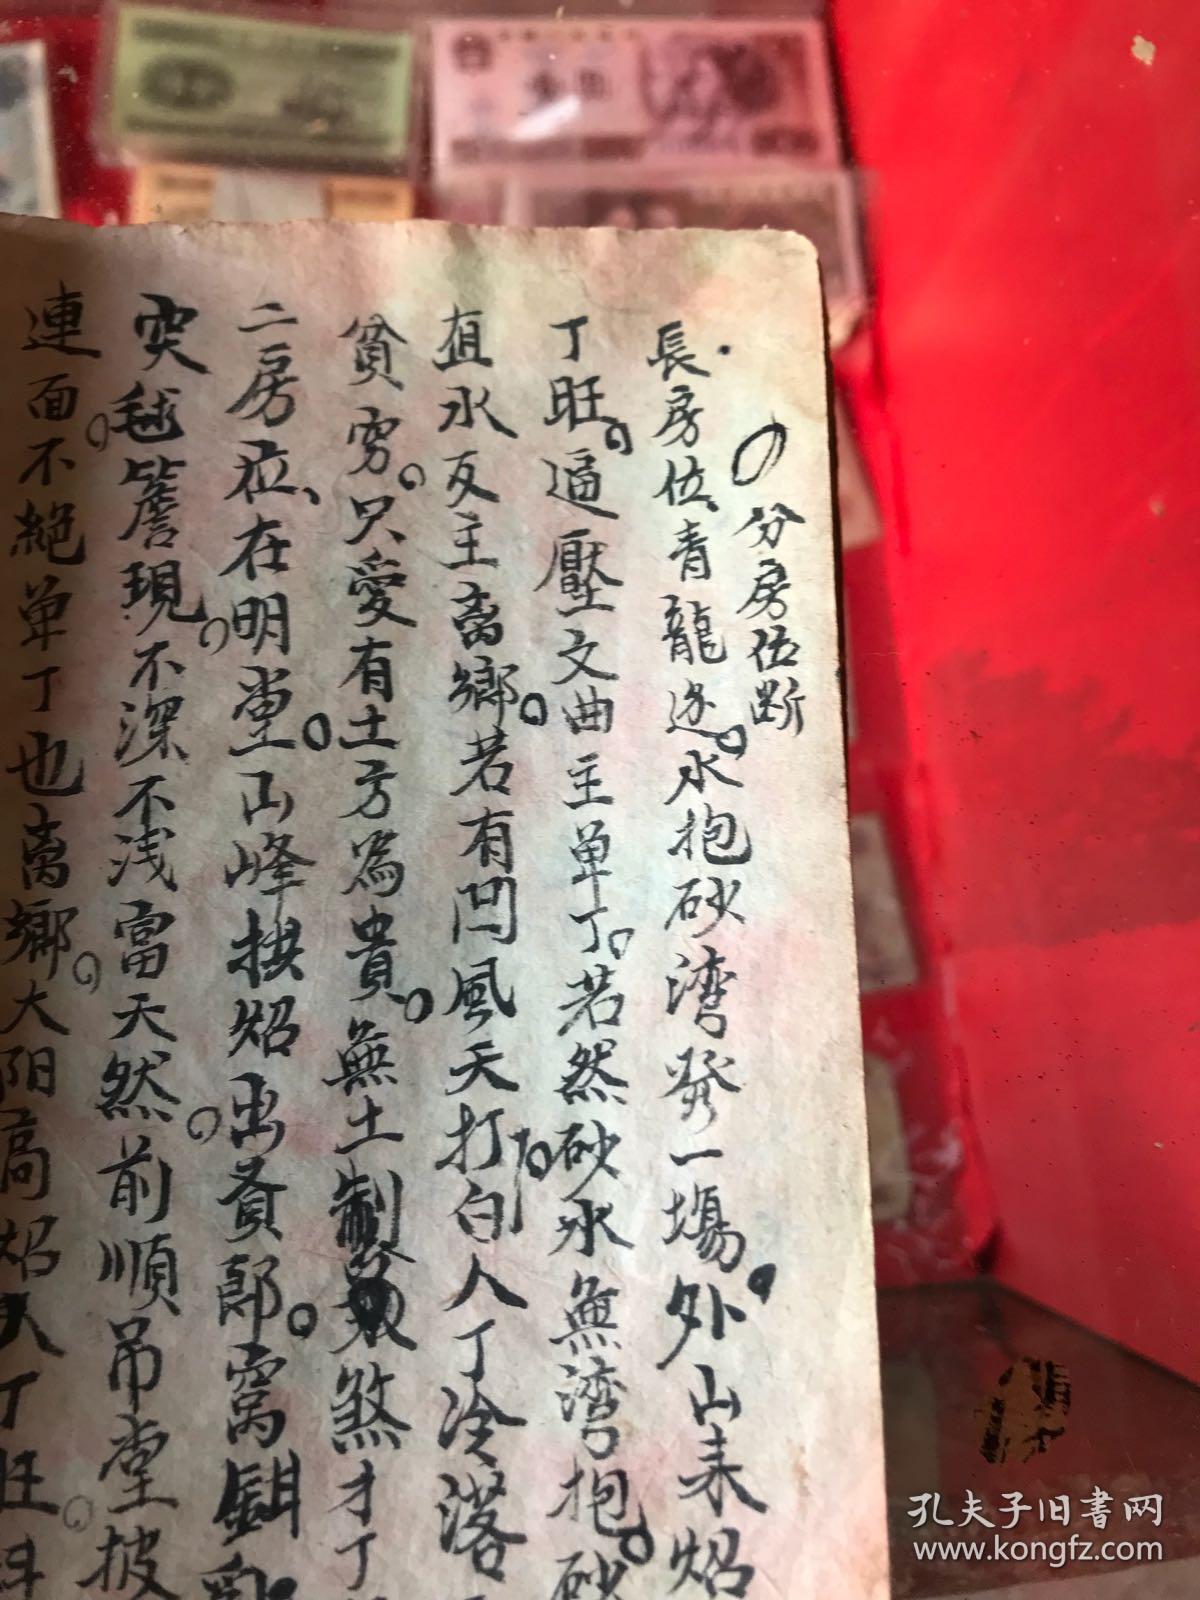 分房位断
長房位、青龍边。水抱砂湾發一場。外山来炤
丁旺。逼壓文曲主單丁。若然砂水無湾抱。砂
直水反主离鄉。若有凹風天打白人丁冷落
貧穷。只愛有土方為貴。無土制煞才丁
二房位、在明堂。山峰拱炤出貴郎。窩鉗乳
突毬簷現。不深不浅富天然。前順吊堂披
連面。不絕单丁也离鄉。大阳高炤人丁旺。
孔夫子旧书网
www.kongfz.com